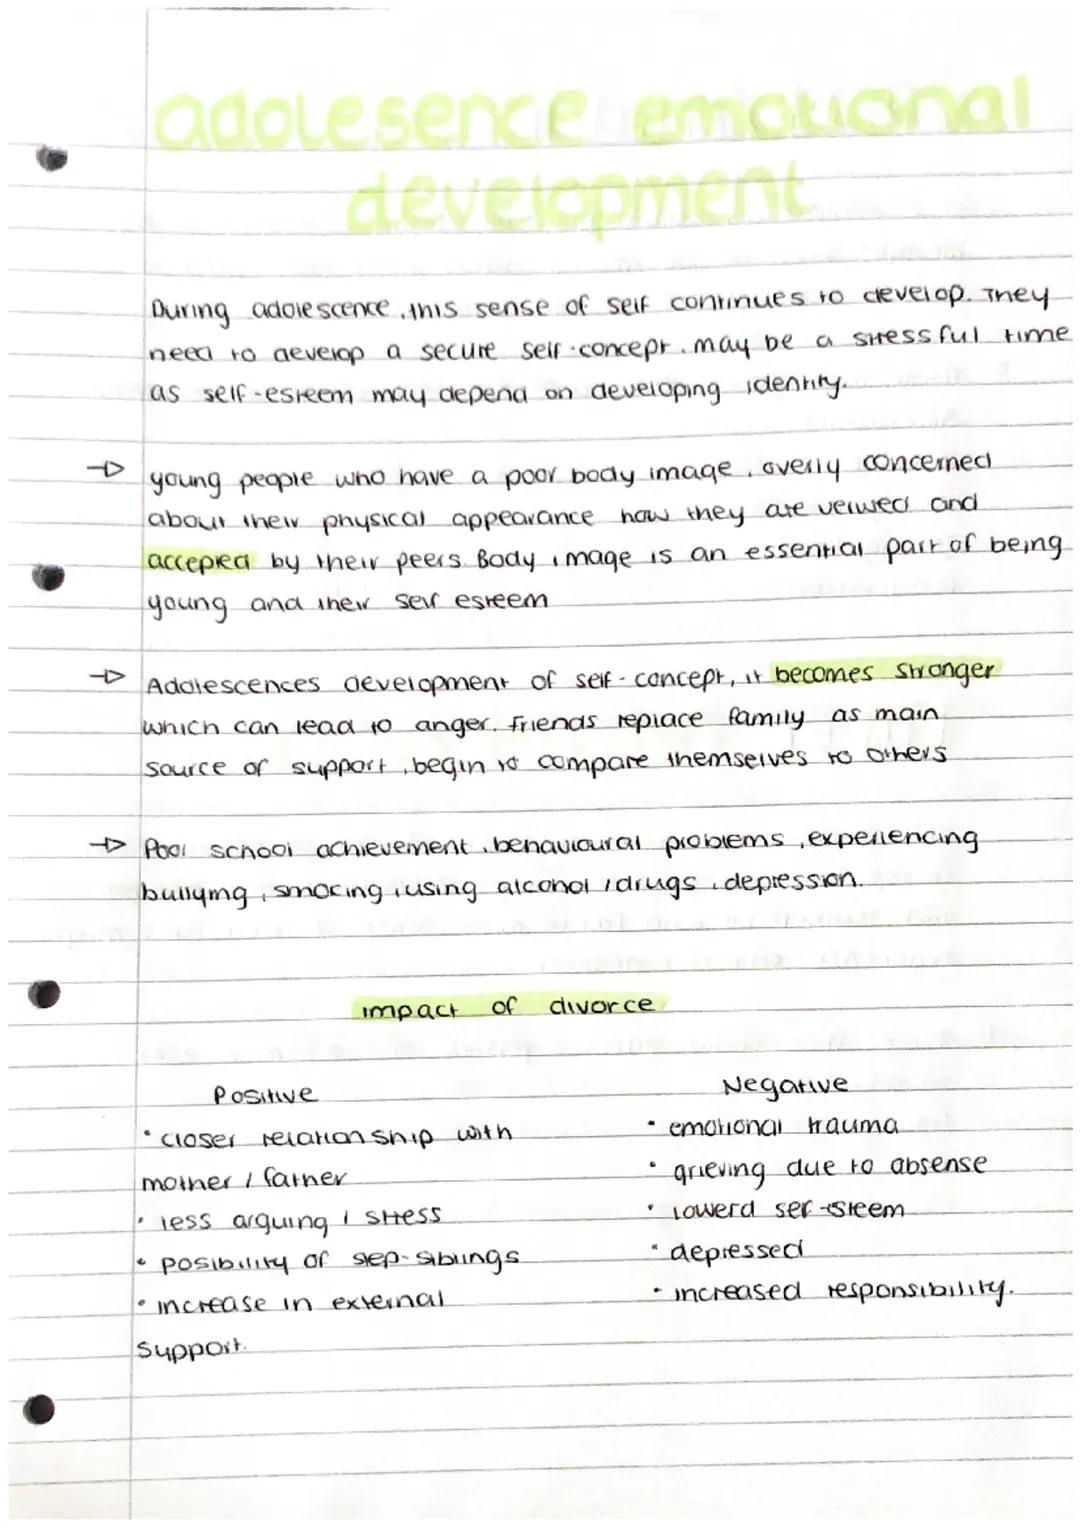 adolesence emotional
development
During adolescence, this sense of self continues to develop. They
need to develop a secure self-concept. may be a stressful time
as self-esteem may depend on developing identity.
young people who have a poor body image, overly concerned
about their physical appearance how they are veiwed and
accepted by their peers. Body image is an essential part of being
young and their self esteem
Adolescences development of self-concept, it becomes stronger
which can lead to anger. friends replace family as main
source of support, begin to compare themselves to others
Poor school achievement, behavioural problems, experiencing
bullying, smocing, using alcohol / drugs, depression.
impact of divorce
Positive
• closer relationship with
mother / father
• less arguing / stress
• posibility of step-siblings
• increase in external
support.
Negative
• emotional trauma
• grieving due to absense
• lowerd self-esteem
• depressed
• increased responsibility.